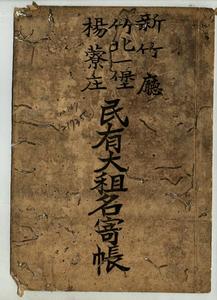 新竹廳
竹北一堡
楊藔庄
民有大租名寄帳